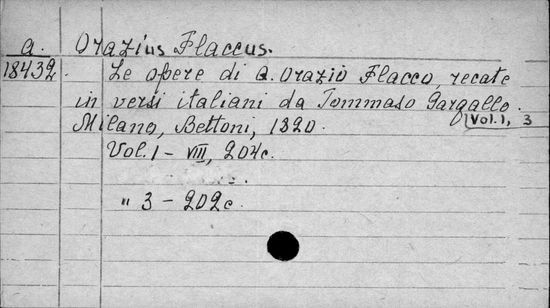 a. Orazius Flaccus.
18432. Le opere di Q. Orazio Flacco, recate
in versi italiani da Tommaso Gargallo.
Milano, Bettoni, 1820. Vol. 1, 3
Vol. 1 – VIII, 204c.
" 3 – 202c